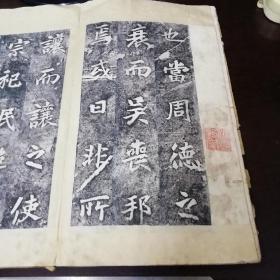 也當周德之
衰而吳喪邦
焉或曰非所
讓而讓之使
宗祀